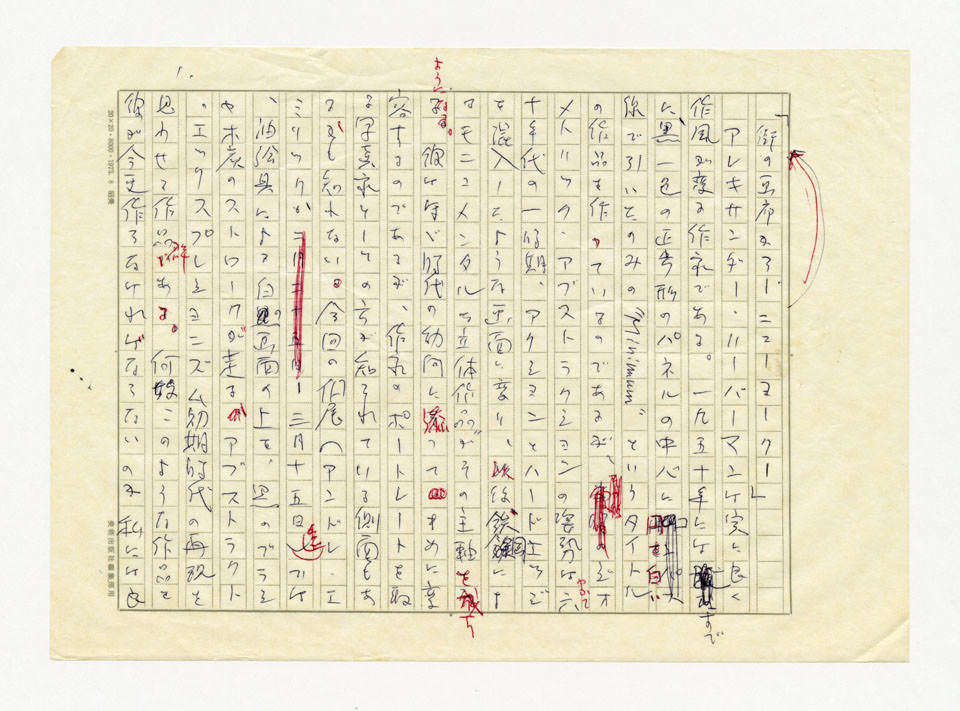 「街の画廊から―ニューヨーク―」
アレキサンダー・リーバーマンは実に良く
作風が変る作家である。一九五十年にはすで
に黒一色の正方形のパネルの中心に円を白い
線で引いたのみの"Minimum"というタイトル
の作品を作っているのであるが、
メトリック・アブストラクションの姿勢は六
十年代の一時期、アクションとハードエッヂ
を混入したような画面に変り、以後鉄鋼に
るモニュメンタルな立体作品がその主軸を成ち
ようになる。彼は守で時代の動向に添ってまめに変
容するのであるが、作家のポートレートを取
る写真家としての方が知られている側面もあ
るかも知れない。今回の作展(アンドレ・エ
メリックが 三月十五日迄)では
、油絵具による白の画面の上を、黒のブラシ
や木炭のストロークが走るアブストラクト
・エックスプレショニズム初期時代の再現を
思わせる作品群である。何故このような作品を
彼が今更作らなければならないのか私には良
1.
20×20・6000・1973.8
美術出版社編集部用